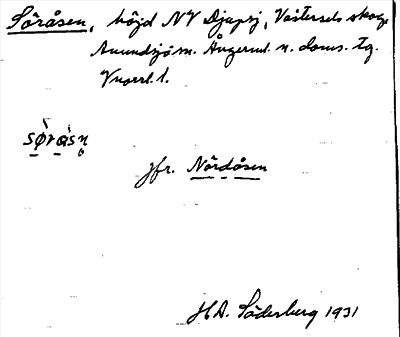 Söråsen, höjd NV Djupsj, Västersels skog,
Anundsjö sn. Ångerml. n. doms. tg.
l.
sø̀råsn̥
jfr. Nördåsen
H.A. Söderberg 1931